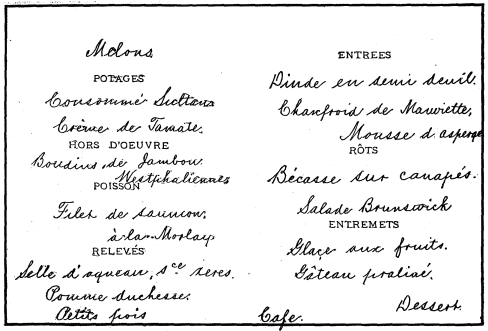 Melons
POTAGES
Consommé Sultana
Crème de Tamate.
HORS D'OEUVRE
Boudins de Jambon
Westphaliennes
POISSON
Filet de saumon,
à la Morlay
RELEVÉS
Selle d'agneau, sce xeres.
Pomme duchesse.
Petits pois
ENTREES
Dinde en demi deuil.
Chaufroid de Mauviette,
Mousse d'asperge
RÔTS
Bécasse sur canapés.
Salade Brunswick
ENTREMETS
Glaçe aux fruits.
Gâteau praliné.
Dessert.
Cafe.